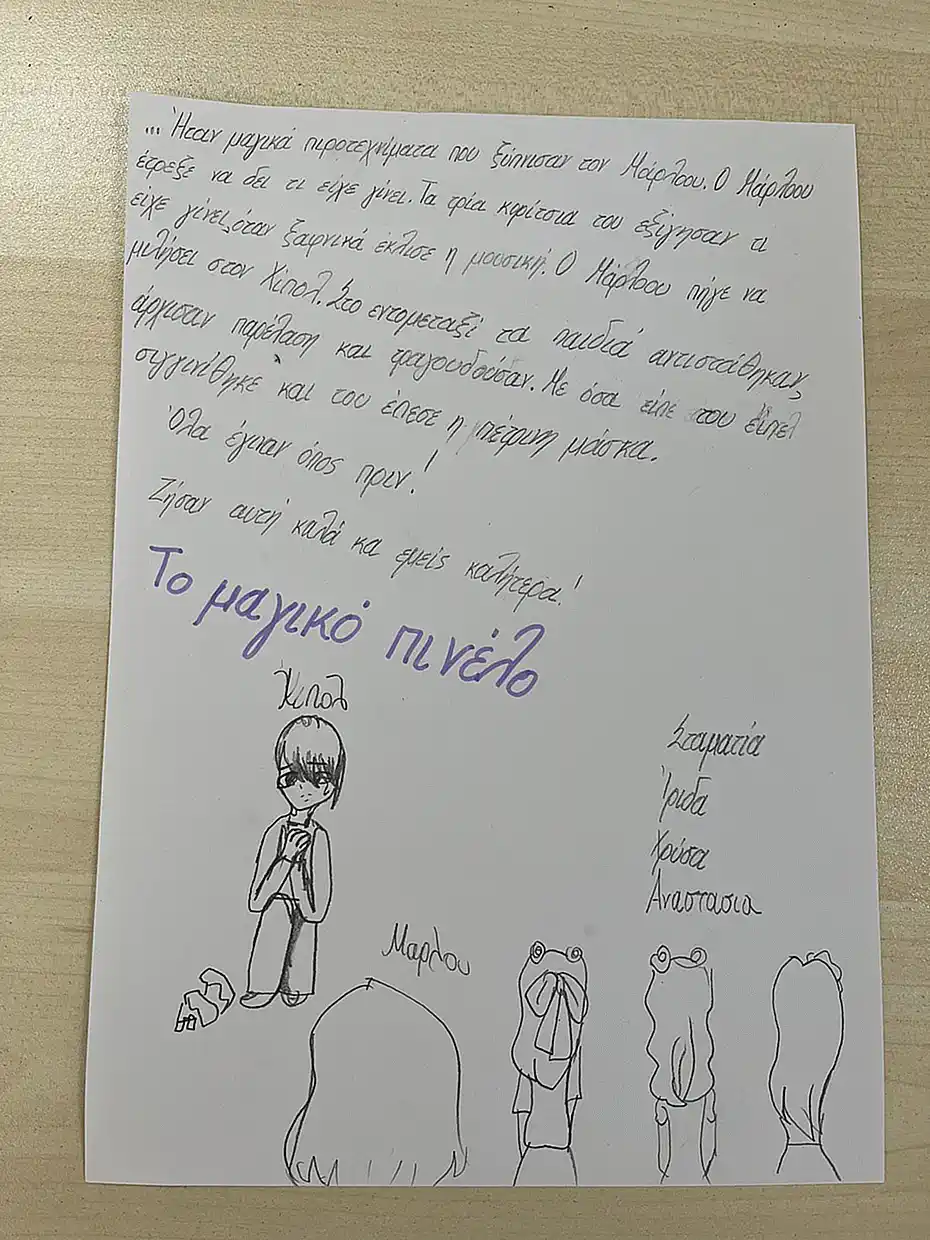 ... Ήταν μαγικά πιροτεχνήματα που ξύπνισαν τον Μάρλοου. Ο Μάρλοου
έτρεξε να δει τι είχε γίνει. Τα τρία κορίτσια του εξίγησαν τι
είχε γίνει, όταν ξαφνικά έκλισε η μουσική. Ο Μάρλοου πήγε να
μιλήσει στον Χίπολ. Στο εντομεταξί τα παιδιά αντιστάθηκαν,
άρχισαν παρέλαση και τραγουδούσαν. Με όσα είπε του είπε
σιγγινήθηκε και του έπεσε η πέτρινη μάσκα.
Όλα έγιναν όπος πριν!
Ζήσαν αυτή καλά κα εμείς καλήτερα!
Το μαγικό πινέλο
Χιπολ
Σταματία
Ίριδα
Χρύσα
Αναστασια
Μαρλου